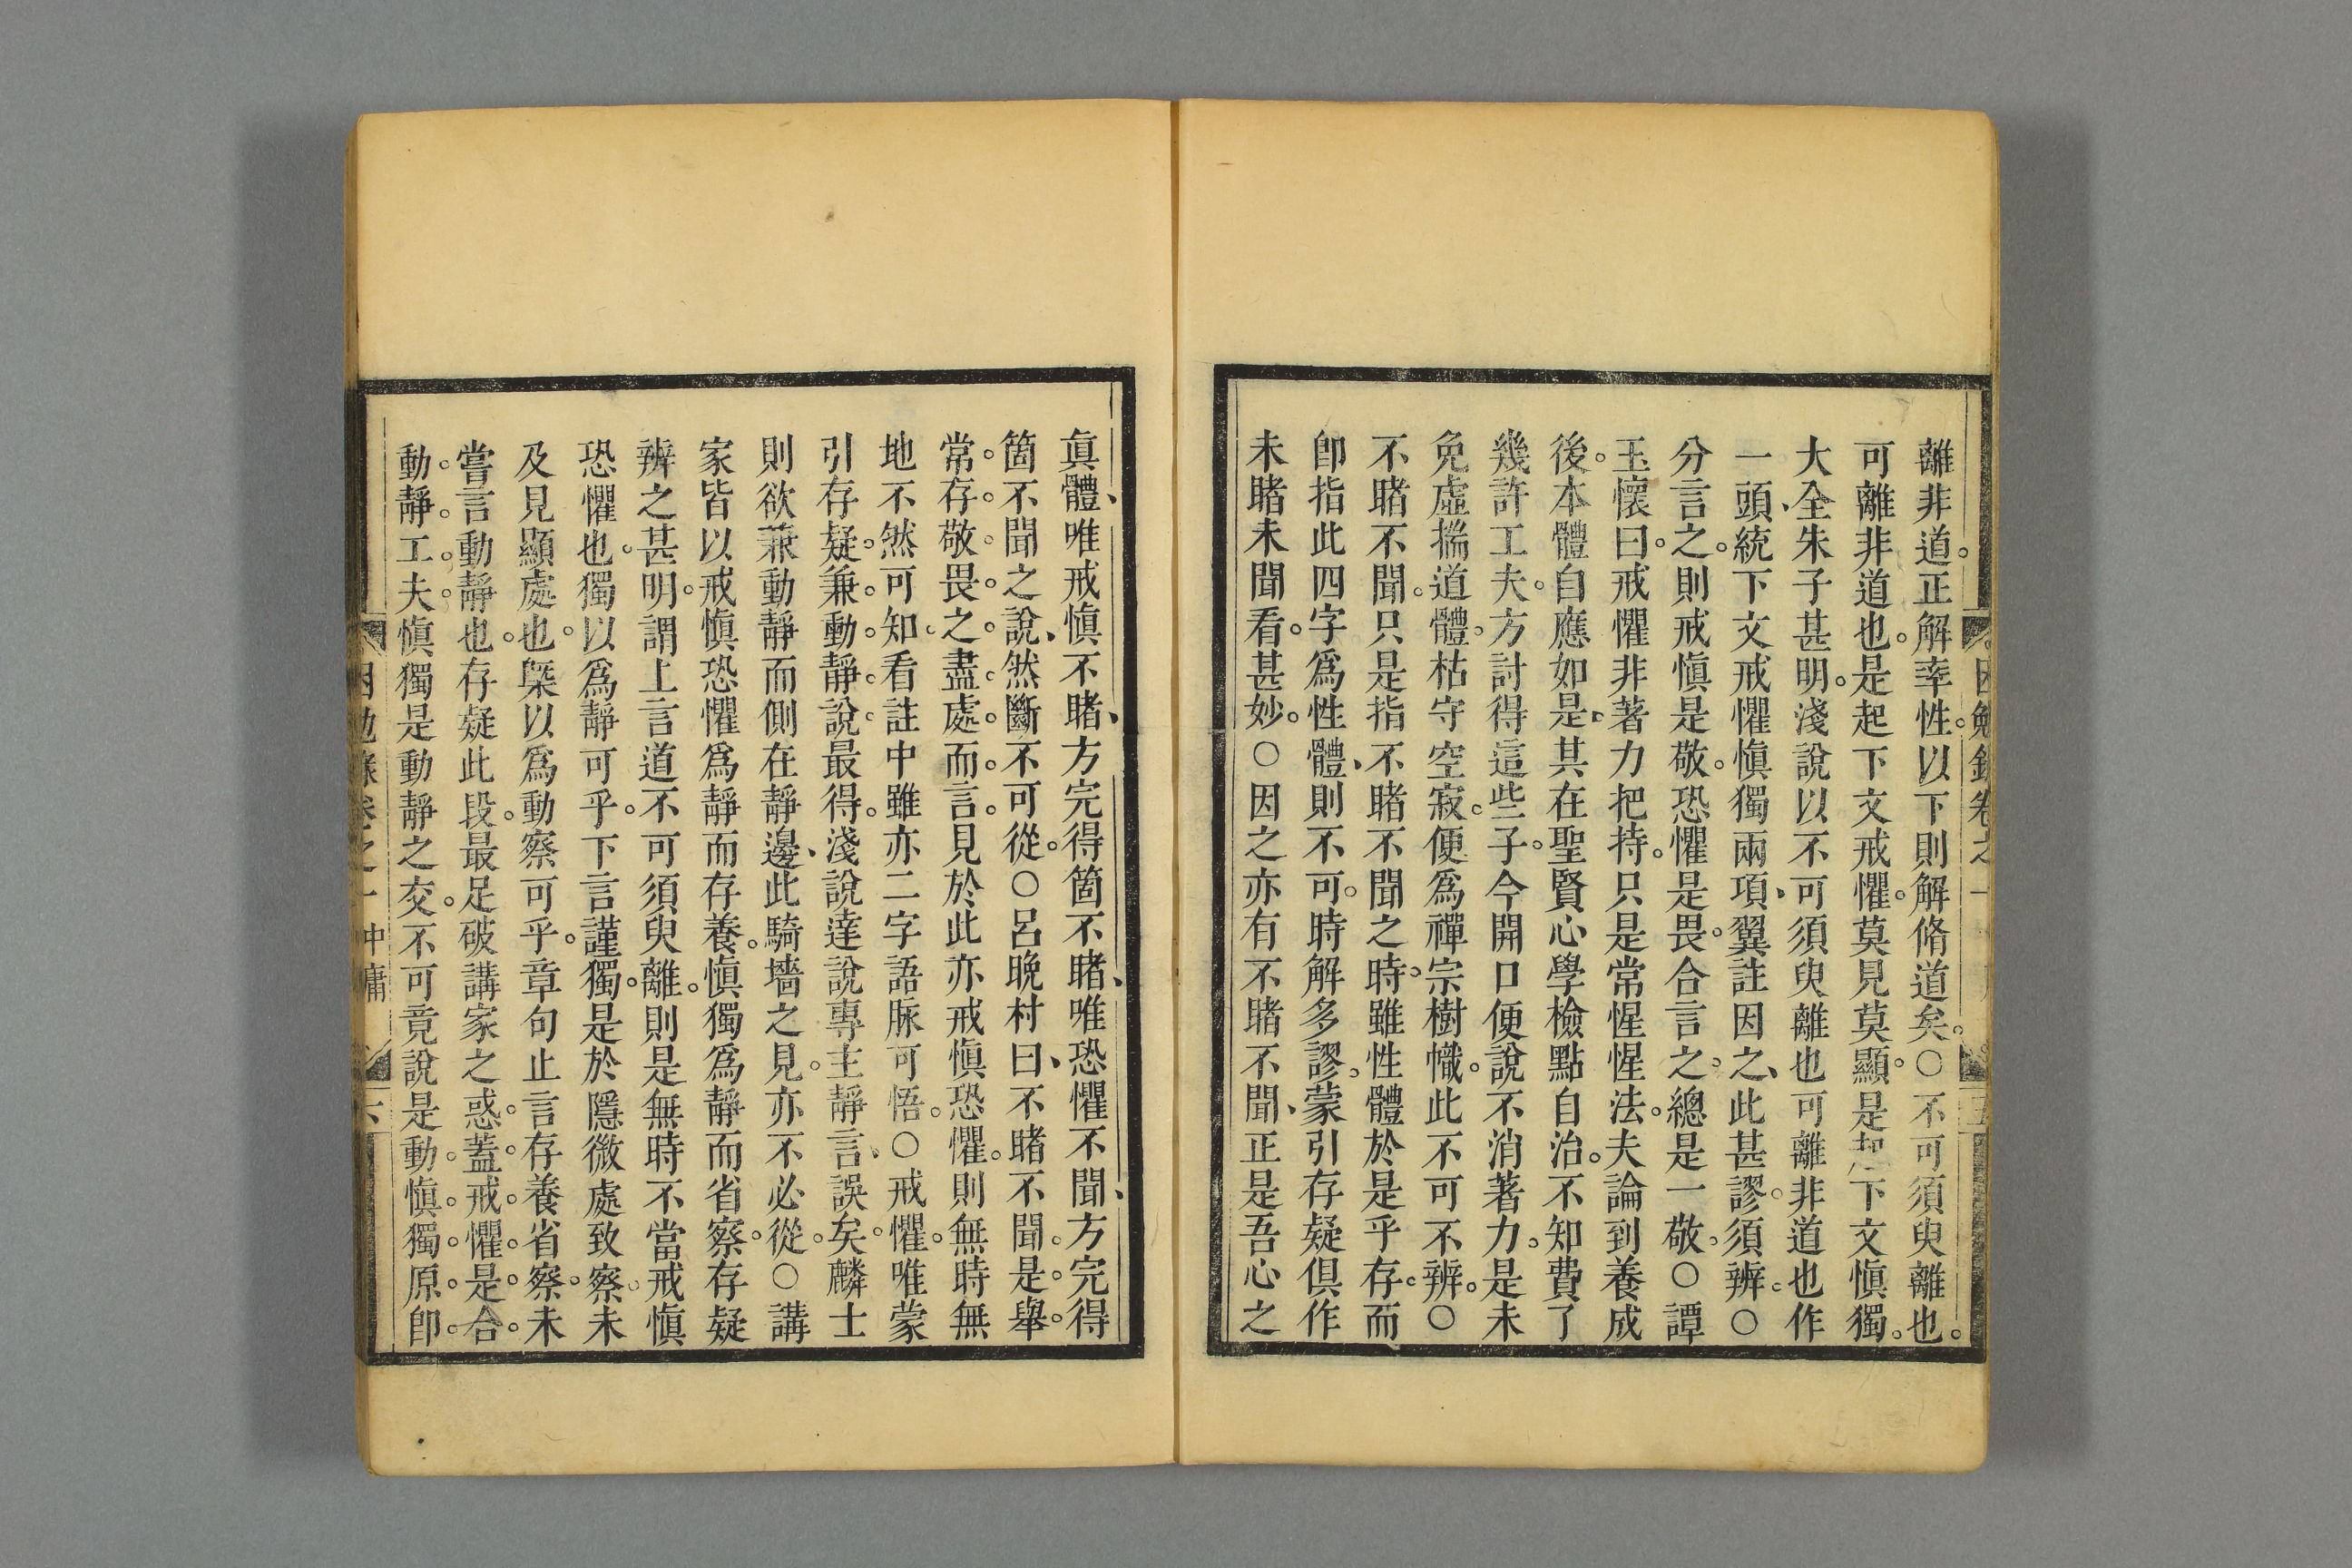 離非道。正解率性。以下則解脩道矣。○不可須臾離也。
可離非道也。是起下文戒懼。莫見莫顯。是起下文愼獨。
大全朱子甚明。淺說以不可須臾離也可離非道也作
一頭、統下文戒懼愼獨兩項、翼註因之、此甚謬。須辨。○
分言之。則戒愼是敬。恐懼是畏。合言之。總是一敬。○譚
玉懷曰。戒懼非著力把持。只是常惺惺法。夫論到養成
後。本體自應如是、其在聖賢心學檢點自治。不知費了
幾許工夫。方討得這些子。今開口便說不消著力。是未
免虛揣道體。枯守空寂。便爲禪宗樹幟。此不可不辨。○
不睹不聞。只是指不睹不聞之時。雖性體於是乎存。而
卽指此四字爲性體、則不可。時解多謬。蒙引存疑俱作
未睹未聞看。甚妙。○因之亦有不睹不聞、正是吾心之
眞體、唯戒愼不睹、方完得箇不睹、唯恐懼不聞、方完得
箇不聞之說、然斷不可從。○呂晚村曰、不睹不聞。是舉。
常。存。敬。畏。之。盡。處。而。言。見於此亦戒愼恐懼。則無時無
地不然可知。看註中雖亦二字語脉可悟。○戒懼。唯蒙
引存疑。兼。動。靜。說。最得。淺說達說專主靜言、誤矣。麟士
則欲兼動靜而側在靜邊、此騎墻之見。亦不必從。○講
家皆以戒愼恐懼爲靜而存養。愼獨爲靜而省察。存疑
辨之甚明。謂上言道不可須臾離。則是無時不當戒愼
恐懼也。獨以爲靜可乎。下言謹獨。是於隱微處致察。未
及見顯處也。槩以爲動察可乎。章句止言存養省察。未
嘗言動靜也。存疑此段。最足破講家之惑。蓋。戒。懼。是。合。
動。靜。工。夫。愼獨是動靜之交。不可竟說是動。愼。獨。原。卽。
困勉錄卷之一 中庸 六